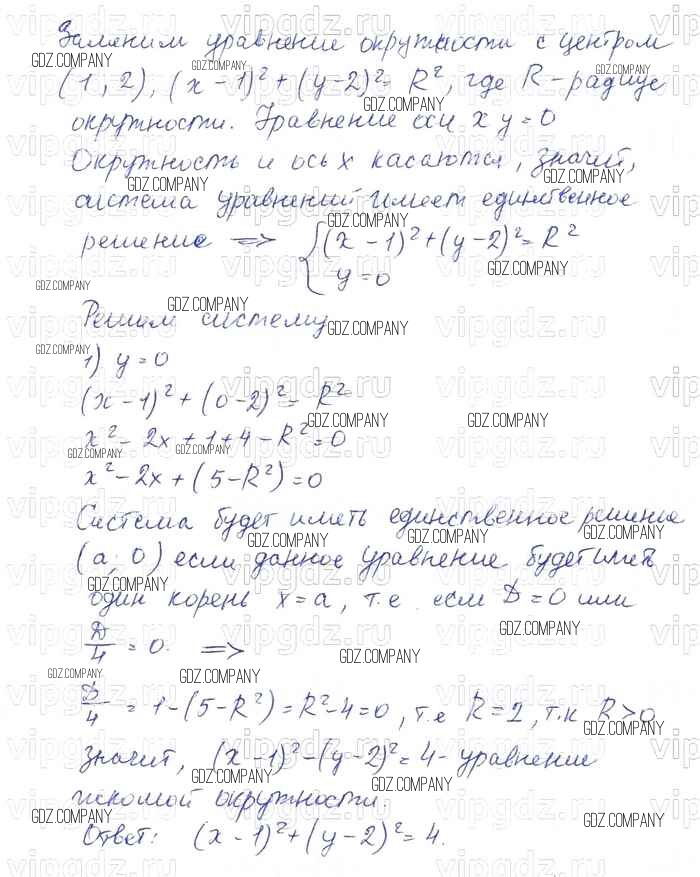 Запишем уравнение окружности с центром
(1, 2), (x-1)²+(y-2)²=R², где R-радиус
окружности. Уравнение оси x y=0
Окружность и ось x касаются, значит,
система уравнений имеет единственное
решение => { (x-1)²+(y-2)²=R²
y=0
Решим систему
1) y=0
(x-1)²+(0-2)²=R²
x²-2x+1+4-R²=0
x²-2x+(5-R²)=0
Система будет иметь единственное решение
(a; 0) если данное уравнение будет иметь
один корень x=a, т.е. если D=0 или
D/4=0. =>
D/4=1-(5-R²)=R²-4=0, т.е R=2, т.к R>0
Значит, (x-1)²-(y-2)²=4-уравнение
искомой окружности.
Ответ: (x-1)²+(y-2)²=4.
GDZ.COMPANY
vipgdz.ru